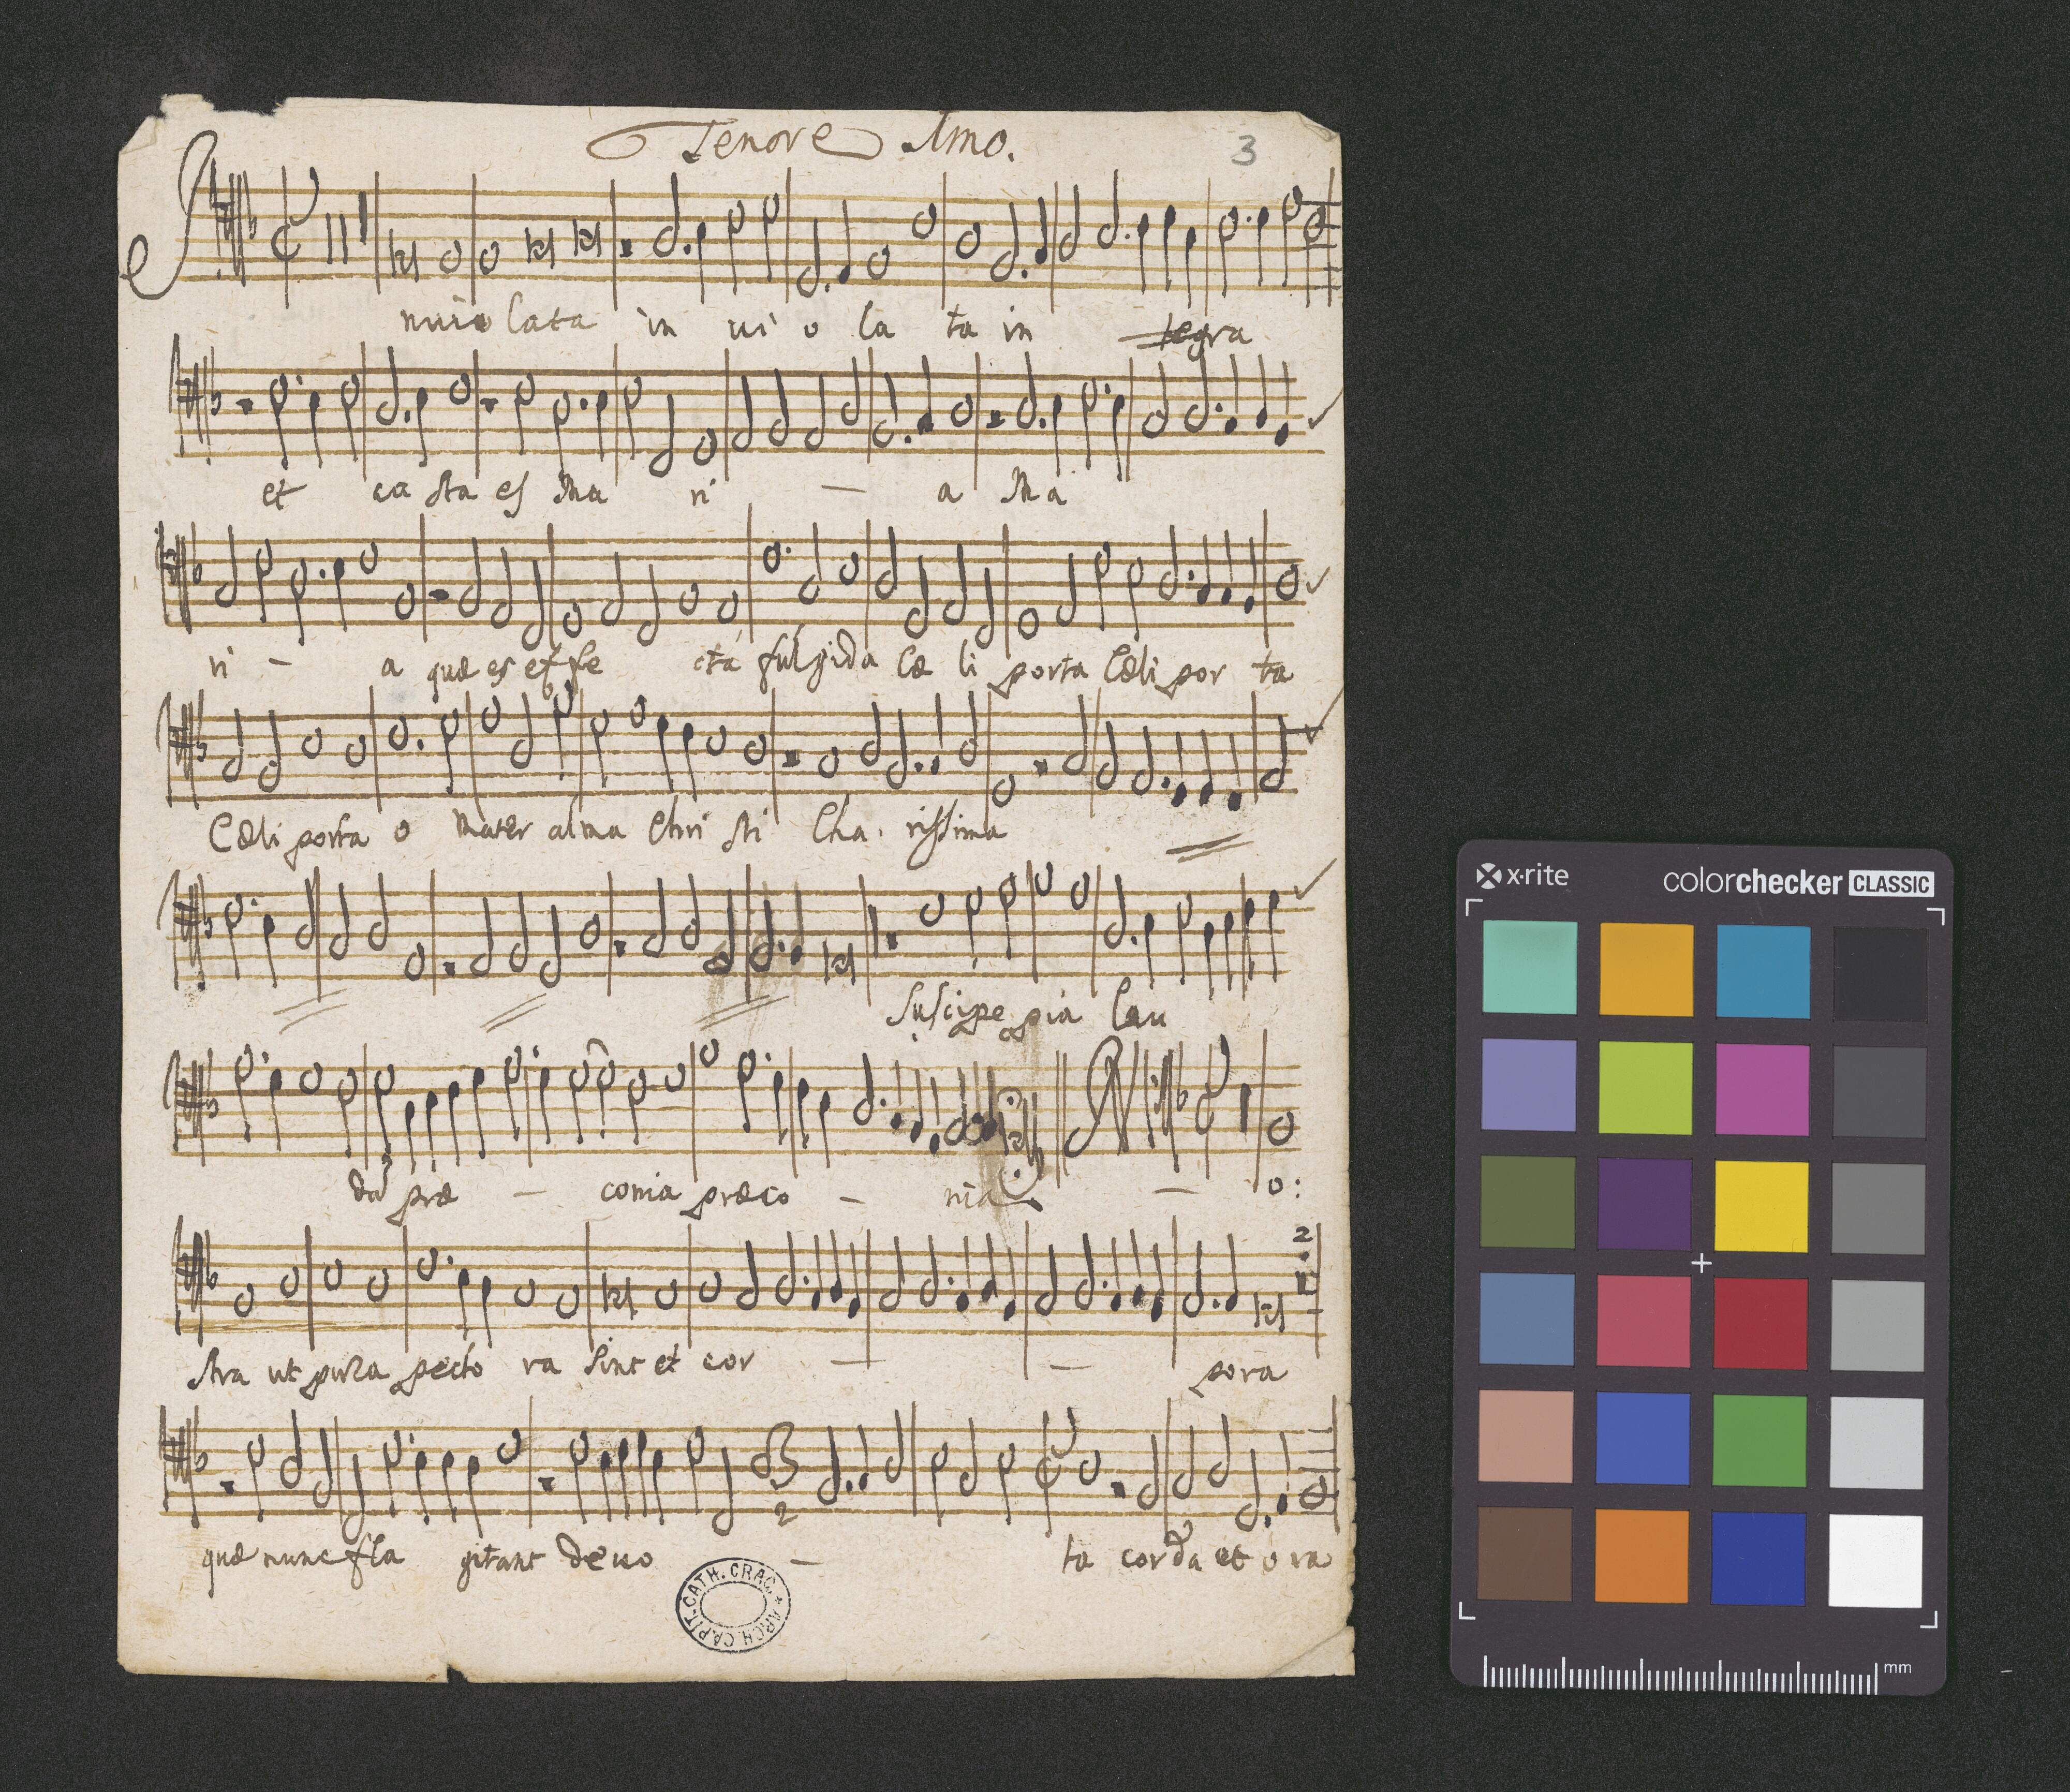 Tenore Imo.
3
Inuiolata in ui o la ta in tegra
et ca sta es Ma ri — a Ma
ri — a quæ es effe cta fulgida Cæ li porta Cæli por ta
Cæli porta o Mater alma Chri sti Cha rissima
Suscipe pia lau
da præ — conia præco — nia — o:
stra ut pura pecto ra sint et cor — — pora
2
quæ nunc fla gitant deuo — ta corda et o ra
3
2
ARCH. CAPIT. CATH. CRAC.
x·rite
colorchecker CLASSIC
mm